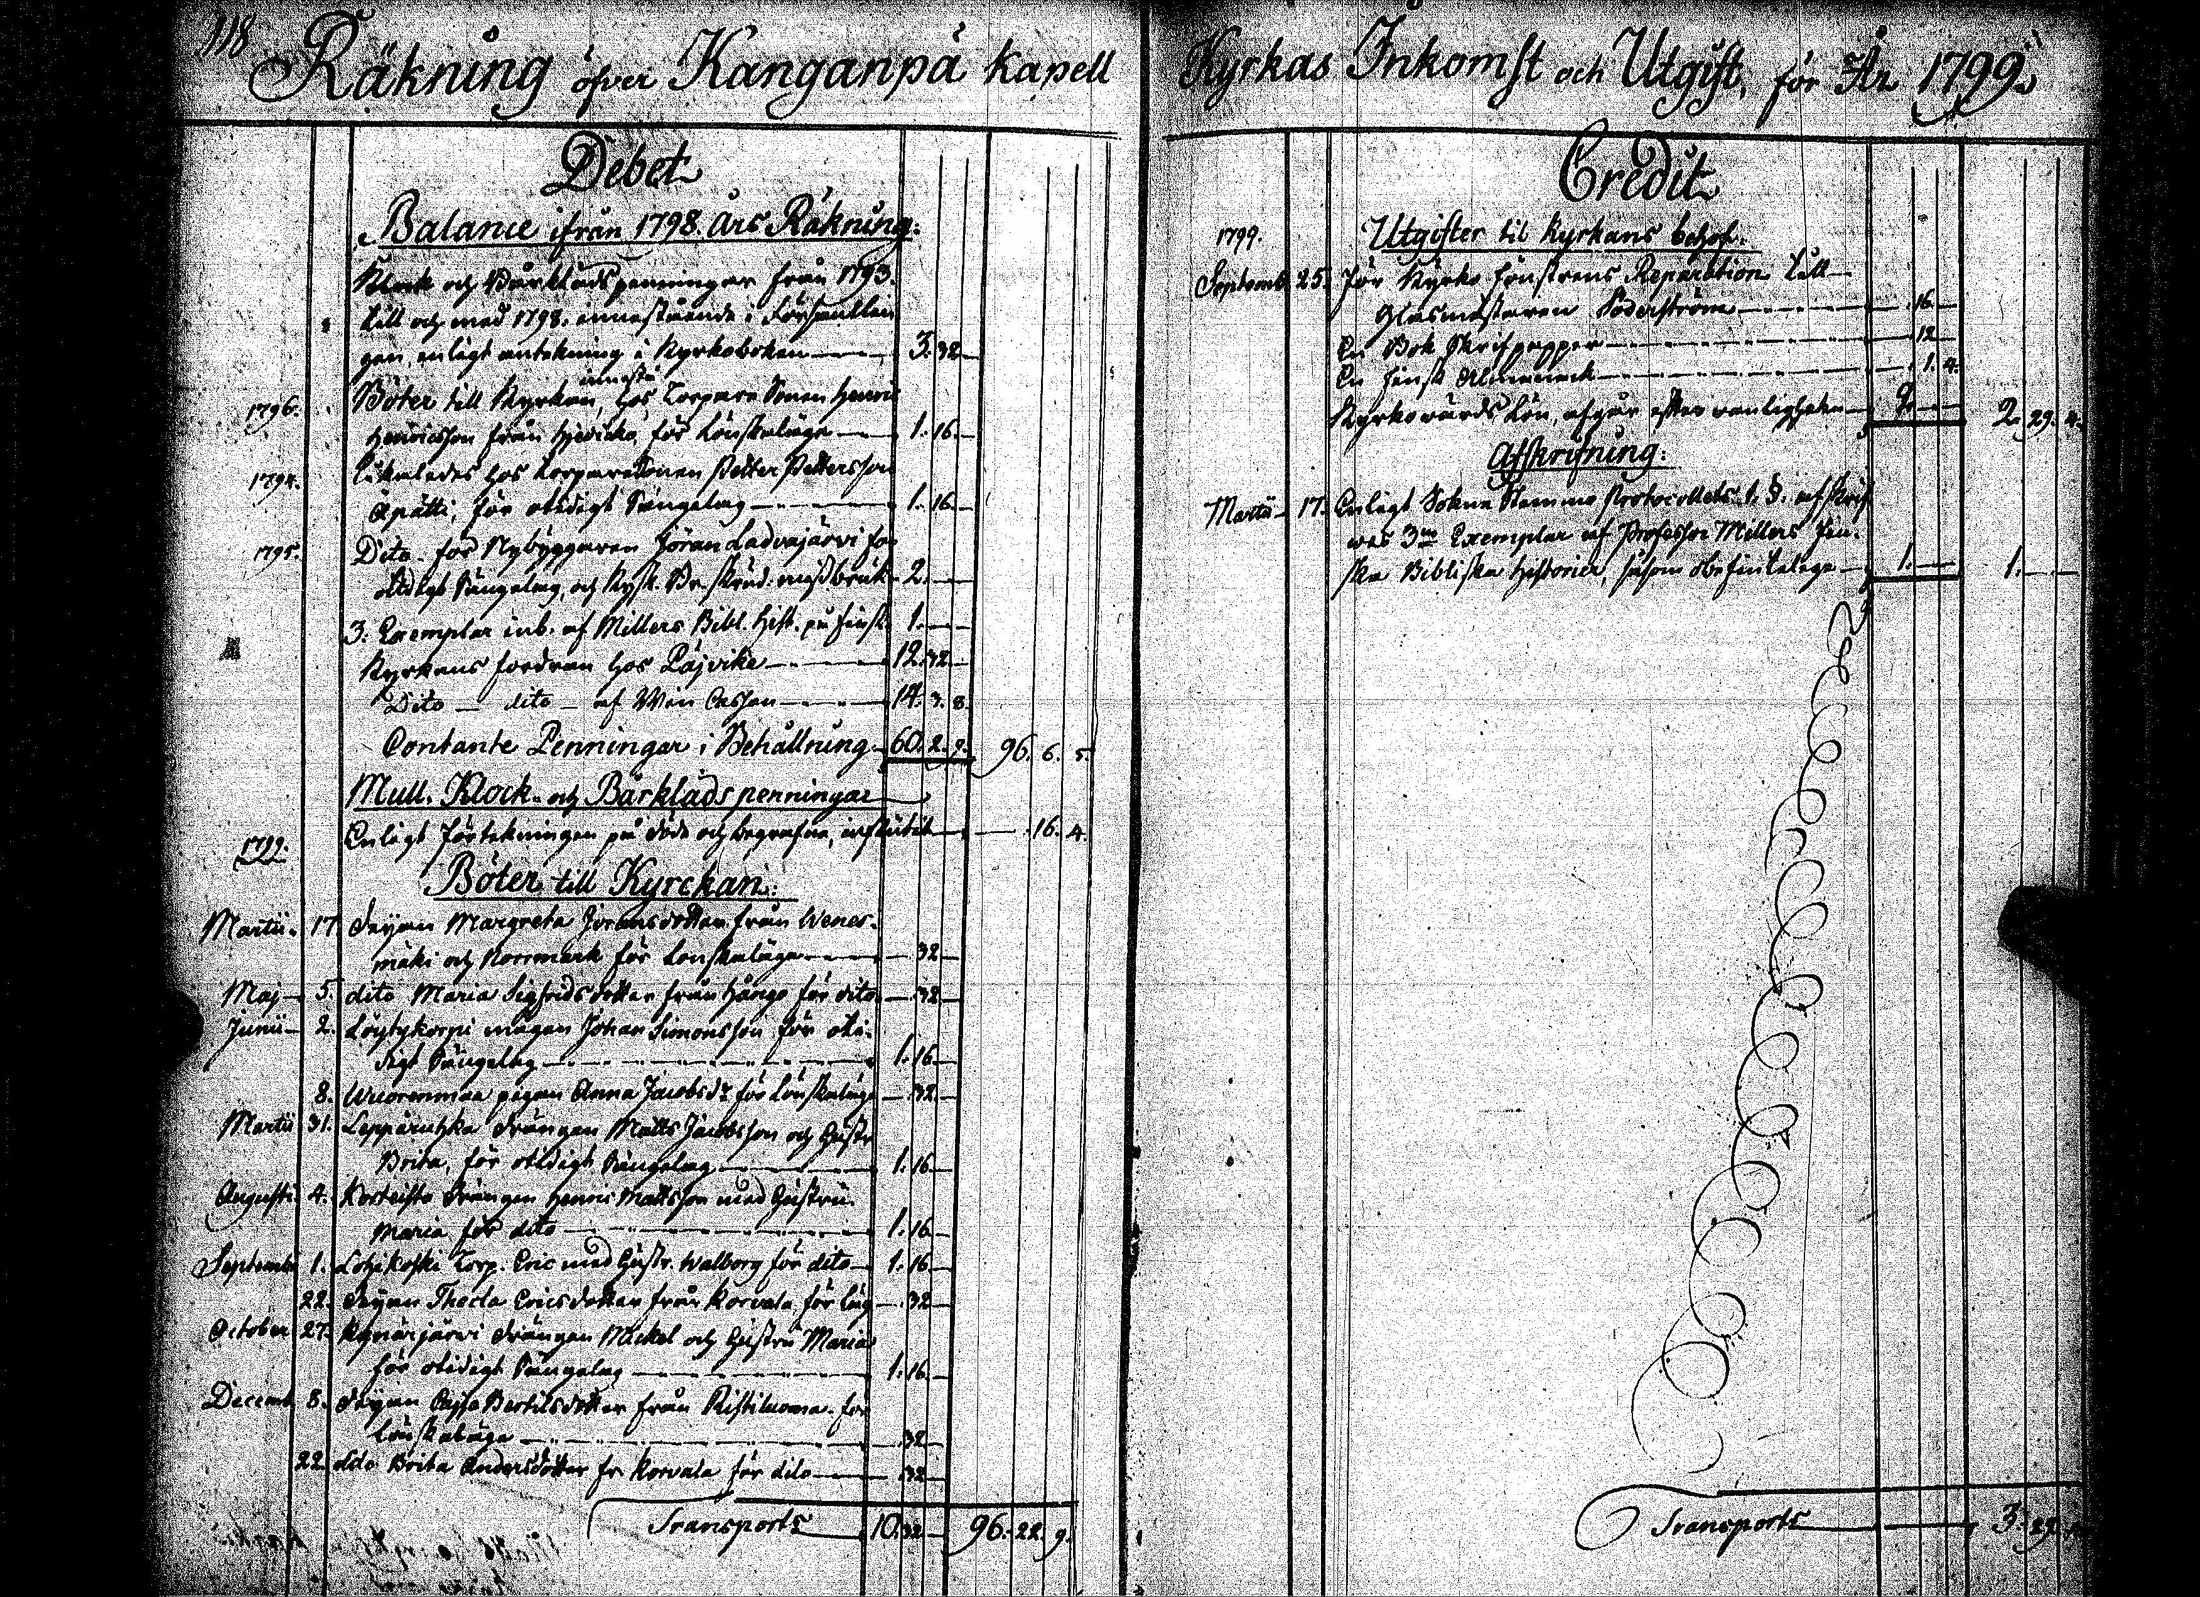 118
Räkning öfver Kanganpä Kapell Kyrkas Inkomst och Utgift, för År 1799.
Debet
Balance ifrån 1798 års Räkning:
Klock och Bårklädspenningar från 1793.
till och med 1798. innestående i Församlin
gen, enligt antekning i Kyrkoboken 3. 32
innestå
1796. Böter till Kyrkan, hos Torpare Sonen Henric
Henricsson från för Lönskaläge 1. 16.
1794. Likaledes hos Torparesonen Petter Pettersson
för otidigt Sängelag 1. 16.
1795. Dito för Nybyggaren Jöran Ladvajärvi för
otidigt Sängelag, och missbruk 2.
3. Exemplar inb. af Millers Bibl. Hist. på finsk. 1.
Kyrkans fordran hos Päjvike 12. 32
Dito dito af 14. 3. 8.
Contante Penningar i Behållning 60. 2. 9. 96. 6. 5.
Mull. Klock- och Bårkläds penningar
1799. Enligt Förtekningen på döde och begrafne, influtit 16. 4.
Böter till Kyrckan:
Martii. 17. Pigan Margreta Joransdotter från Wenes-
mäki och Norrmark för Lönskaläge 32
Maj 5. dito Maria Sigfridsdotter från Hångo för dito. 32
Junii 2. Löytykorpi mågen Johan Simonsson för oti-
digt Sängelag 1. 16
8. pigan Anna Jacobsdr för Lönskaläge 32
Martii 31. Drängen Matts Jacobsson och Hustr
Brita, för otidigt Sängelag 1. 16
Augusti. 4. Drängen Henric Mattsson med Hustru.
Maria för dito 1. 16
Septemb 1. Lohikoski Torp. Eric med Hustr. Walborg för dito 1. 16
22. Pigan Thecla Ericsdotter från Korvala, för Läg 32
October 27. Kynärjärvi Drängen Mickel och Hustru Maria
för otidigt Sängelag 1. 16.
Decemb. 8. Pigan Cajsa Bertilsdotter från Ristiluoma. för
Lönskaläge 32
22. dito Brita Andersdotter fr. Korvala för dito 32
Transport 10. 32 96. 22. 9.
Credit
1799. Utgifter til Kyrkans behof.
Septemb. 25. För Kyrko fönstrens Reparation till
Glasmästaren Söderström 16.
En Bok Skrifpapper 12
En finsk Almanack 1. 4.
Kyrkowärds Lön, afgår efter wanligheten 2. 2. 29. 4.
Afskrifning:
Martii 17. Enligt Sokne Stemmo Protocollets 1. §. afskrif
wes 3ne Exemplar af Professor Millers Fin-
ska Bibliska Historier, såsom obefintelige 1. 1.
Transport 3. 29.